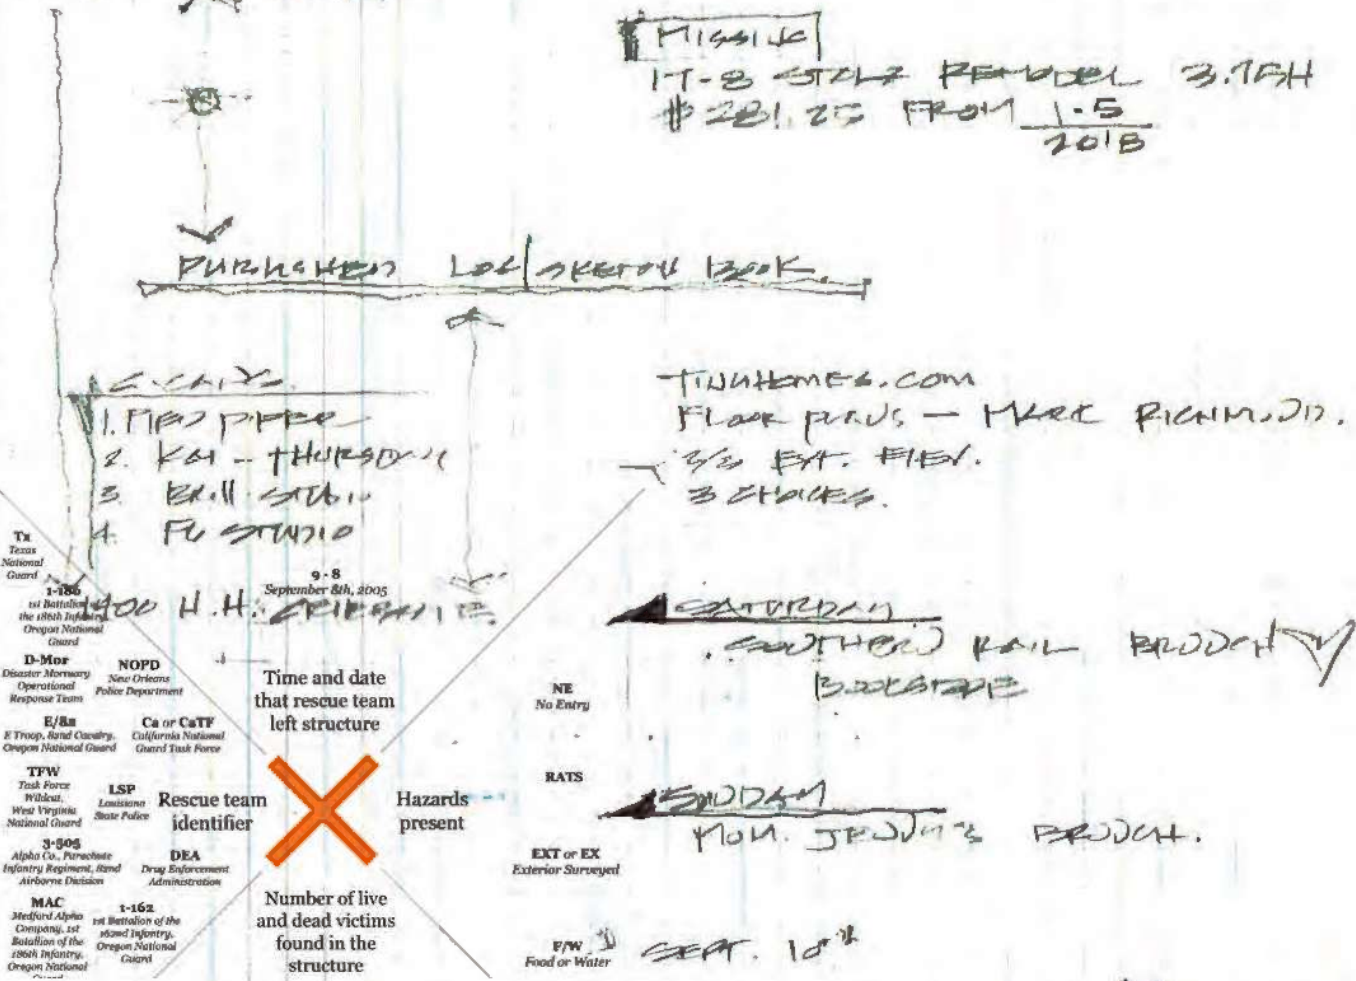 MISSING
17-8 STOLZ REMODEL 3.75H
$281.25 FROM 1-5
2018
PUBLISHED LOG/SKETCH BOOK.
1. PIED PIPER
2. KAI - THURSDAY
3. STUDIO
4. STUDIO
TINYHOMES.COM
FLOOR PLANS — MARK RICHMOND.
EXT. ELEV.
3 CHOICES.
1400 H.H.
SATURDAY
SOUTHERN RAIL BRUNCH
BOOKSTORE
SUNDAY
MOM. BRUNCH.
SEPT. 10th
Tx
Texas
National
Guard
1-186
1st Battalion of
the 186th Infantry,
Oregon National
Guard
D-Mor
Disaster Mortuary
Operational
Response Team
NOPD
New Orleans
Police Department
E/82
E Troop, 82nd Cavalry,
Oregon National Guard
Ca or CaTF
California National
Guard Task Force
TFW
Task Force
Wildcat,
West Virginia
National Guard
LSP
Louisiana
State Police
3-505
Alpha Co., Parachute
Infantry Regiment, 82nd
Airborne Division
DEA
Drug Enforcement
Administration
MAC
Medford Alpha
Company, 1st
Batallion of the
186th Infantry,
Oregon National
Guard
1-162
1st Battalion of the
162nd Infantry,
Oregon National
Guard
9-8
September 8th, 2005
Time and date
that rescue team
left structure
Rescue team
identifier
Hazards
present
Number of live
and dead victims
found in the
structure
NE
No Entry
RATS
EXT or EX
Exterior Surveyed
F/W
Food or Water